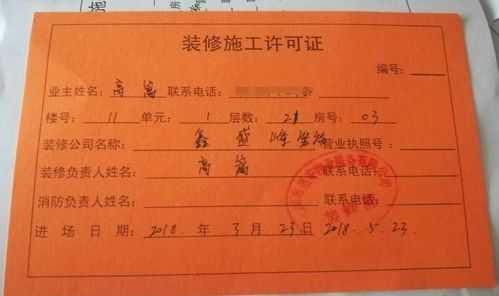 装修施工许可证
编号:
业主姓名: 高嵩 联系电话:
楼号: 11 单元: 1 层数: 21 房号: 03
装修公司名称: 鑫盛 营业执照号:
装修负责人姓名: 高嵩 联系电话:
消防负责人姓名: 联系电话:
进场日期: 2018. 年 3 月 23 日 2018.5.23.